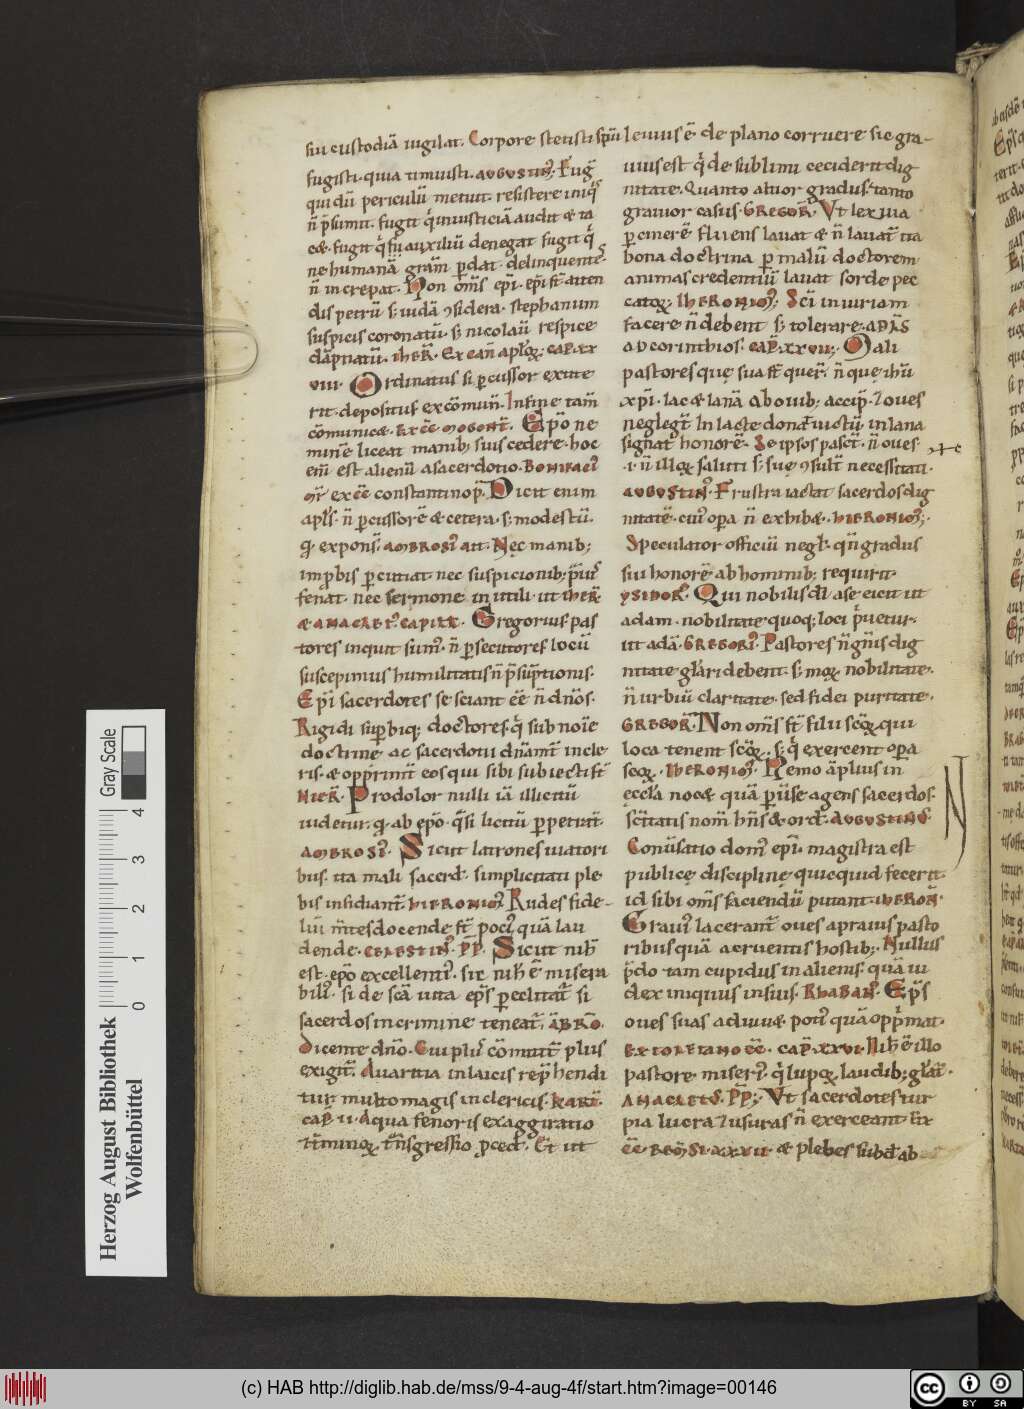 sui custodiā uigilat. Corpore stetisti spū
fugisti. quia timuisti. AUGUSTIN᷒. Fug̃
qui dū periculū metuit. resistere iniq̃s
n̄ p̄sumit. fugit q̇ iniusticiā audit & ta
c&. fugit q̇ suū auxiliū denegat fugit q̇
ne humanā grām perdat. delinquente᷒
n̄ increpat. Non om̄s ep̄i. ep̄i st̄ atten
dis petrū s; iudā ꝯsidera. stephanum
suspicis coronatū. s; nicolaū respice
dāpnatū. IHER̄. Ex can̄ apl̄oꝝ. CAP. XX
VIII. Ordinatus si ꝑcussor extite
rit. depositus excōmun̄. Infine tam̄
cōmunic&. EX CC̄ MOGONT̄. Ep̄o ne
min̄e liceat manib; suis cedere. hoc
em̄ est alienū a sacerdotio. BONIFACI᷒
MR̄ ex cc̄ constantinop̄. Dicit enim
apl̄s. n̄ ꝑcussorē & cetera. s; modestū.
q. expons̄. AMBROSI᷒ att. Nec manib;
improbis ꝑcutiat. nec suspicionib; p̄uir̄
fenat. nec sermone inutili. ut IHER̄
& ANACLET᷒. CAPITE. Gregorius pas
tores inquit sum᷒. n̄ ꝑsecutores locū
suscepimus humilitatis n̄ p̄sūptionis.
Ep̄i sacerdotes se sciant eē n̄ dn̄os.
Rigidi suꝑbiq; doctores. q̇ sub noīe
doctrine ac sacerdotii dn̄amt̄ in cle
ris. & opprimt̄ eos qui sibi subiecti st̄
HIER̄. Prodolor nulli iā illicitū
uidetur. q. ab ep̄o q̄si licitū ꝑpetrat̄.
AMBROSI᷒. Sicut latrones uiatori
bus. ita mali sacerd̄. simplicitati ple
bis insidiant̄. HIERONIM᷒ Rudes fide-
liū m̄tes docende st̄ poci᷒ quā lau
dende. CELESTIN᷒. PP̄. Sicut nih̄
est. ep̄o excellenti᷒. sic nih̄ ē misera
bili᷒. si de scā uita ep̄s ꝑclitat̄ si
sacerdos in crimine teneat̄. AMBRŌ.
Dicente dn̄o. Cui pli᷒ cōmitt̄ plus
exigit̄. Auaritia in laicis rep̄hendi
tur multo magis in clericis. KARL̄.
CAP̄ II. Aqua fenoris exaggeratio
t̄minoꝝ. t̄nsgressio ꝓced̄. Et ut
leuius ē de plano corruere sic gra-
uius est q̇ de sublimi ceciderit dig
nitate. Quanto altior gradus. tanto
grauior casus. GREGOR̄. Ut lexiuia
ꝑ cinerē fluens lauat & n̄ lauat̄ ita
bona doctrina ꝑ malū doctorem
animas credentiū lauat sorde pec
catoꝝ. IHERONIM᷒; Sc̄i iniuriam
facere n̄ debent s; tolerare. APL̄S
AD corinthios. CAP̄. XXVII; Mali
pastores quę sua st̄ quer̄. n̄ quę ih̄u
xp̄i. lac & lanā ab ouib; accip̄. ⁊ oues
neglegt̄ In lacte donat̄ uictū in lana
signat̄ honorē. Se ipsos pasct̄. n̄ oues.
.i. n̄ illoꝝ saluti s; suę ꝯsult̄ necessitati.
AUGUSTIN᷒. Frustra iactat sacerdos dig
nitatē. cui᷒ oꝑa n̄ exhib&. HIERONIM᷒;
Speculator officiū negl̄. qn̄ gradus
sui honorē ab hominib; requirit.
YSIDOR᷒. Qui nobilis d̄l ase eicit ut
adam. nobilitate quoq; loci p̄uetur.
ut adā. GREGORI᷒. Pastores n̄ gn̄is dig
nitate gl̄ari debent. s; moꝝ nobilitate.
n̄ urbiū claritate. sed fidei puritate.
GREGOR̄. Non om̄s st̄ filii scōꝝ qui
loca tenent scōꝝ. s; q̇ exercent oꝑa
scōꝝ. IHERONIM᷒. Nemo āplius in
ęccl̄a noc& quā ꝑuise agens sacerdos.
sc̄itatis nom̄ hn̄s & ord̄. AUGUSTINUS.
Conuersatio dom᷒ ep̄i. magistra est
publicę disciplinę quicquid fecerit.
id sibi om̄s faciendū putant. IHERON̄.
Graui᷒ lacerant̄ oues a prauis pasto
ribus quā a cruentis hostib;. Nullus
p̄do tam cupidus in alienis. quā iu
dex iniquus in suis. RHABAN᷒. Ep̄s
oues suas adiuu& poti᷒ quā opp̄mat.
EX TOLETANO CC̄. CAP̄ XXVI. Nih̄ ē illo
pastore miseri᷒. q̇ lupoꝝ laudib; gl̄at̄.
ANACLETUS. PP̄; Ut sacerdotes tur
pia lucra ⁊ usuras n̄ exerceant. Ex
cc̄ REMSI. XXXVII & plebes subd̄ ab
Herzog August Bibliothek
Wolfenbüttel
Gray Scale
0 1 2 3 4
(c) HAB http://diglib.hab.de/mss/9-4-aug-4f/start.htm?image=00146
cc BY SA